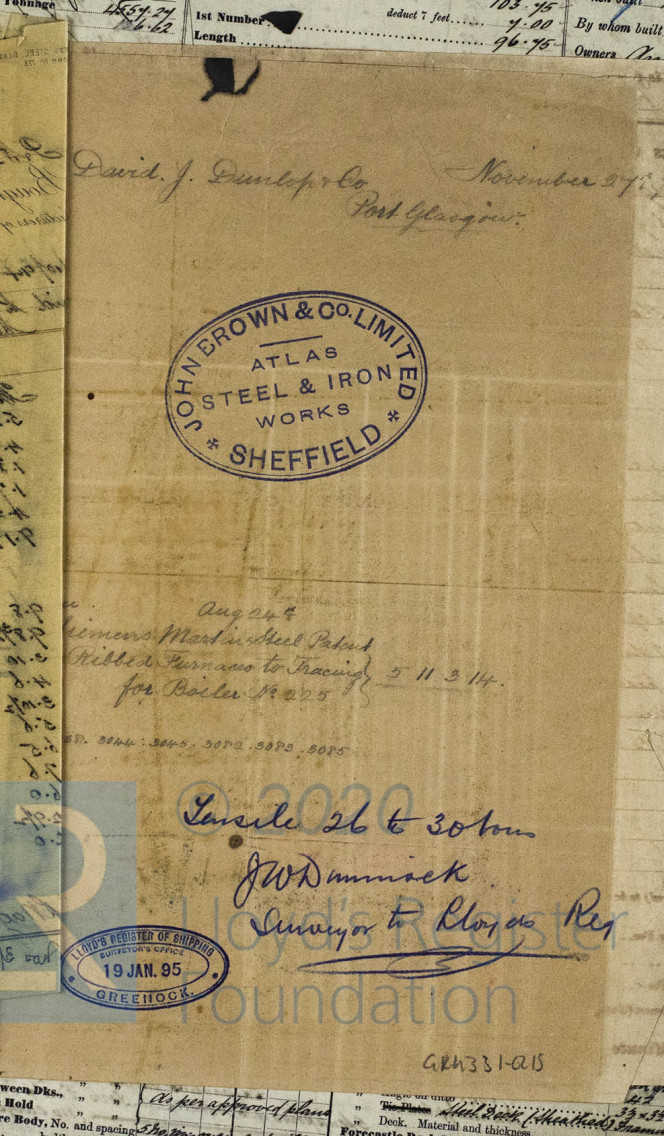 Tonnage
4557.24
6.62
1st Number
Length
103.95
deduct 7 feet
7.00
96.95
By whom built
Owners
David. J. Dunlop & Co
November 27th
Port Glasgow.
JOHN BROWN & CO. LIMITED
ATLAS
STEEL & IRON
WORKS
SHEFFIELD
Aug 24th
Siemens Martin Steel Patent
Ribbed Furnaces to Tracing
for Boiler No 225
5 11 3 14.
3044. 3045. 3082. 3083. 3085
© 2020
Tensile 26 to 30 tons
JW Dimmock
Surveyor to Lloyds Reg
Lloyd's Register
Foundation
LLOYD'S REGISTER OF SHIPPING
SURVEYOR'S OFFICE
19 JAN. 95
GREENOCK.
GRK331-0215
ween Dks., " "
Hold " "
re Body, No. and spacing
as per approved plans
" Angle on ditto
" Tie Plates Steel Deck (Sheathed)
" Deck. Material and thickness
Forecastle